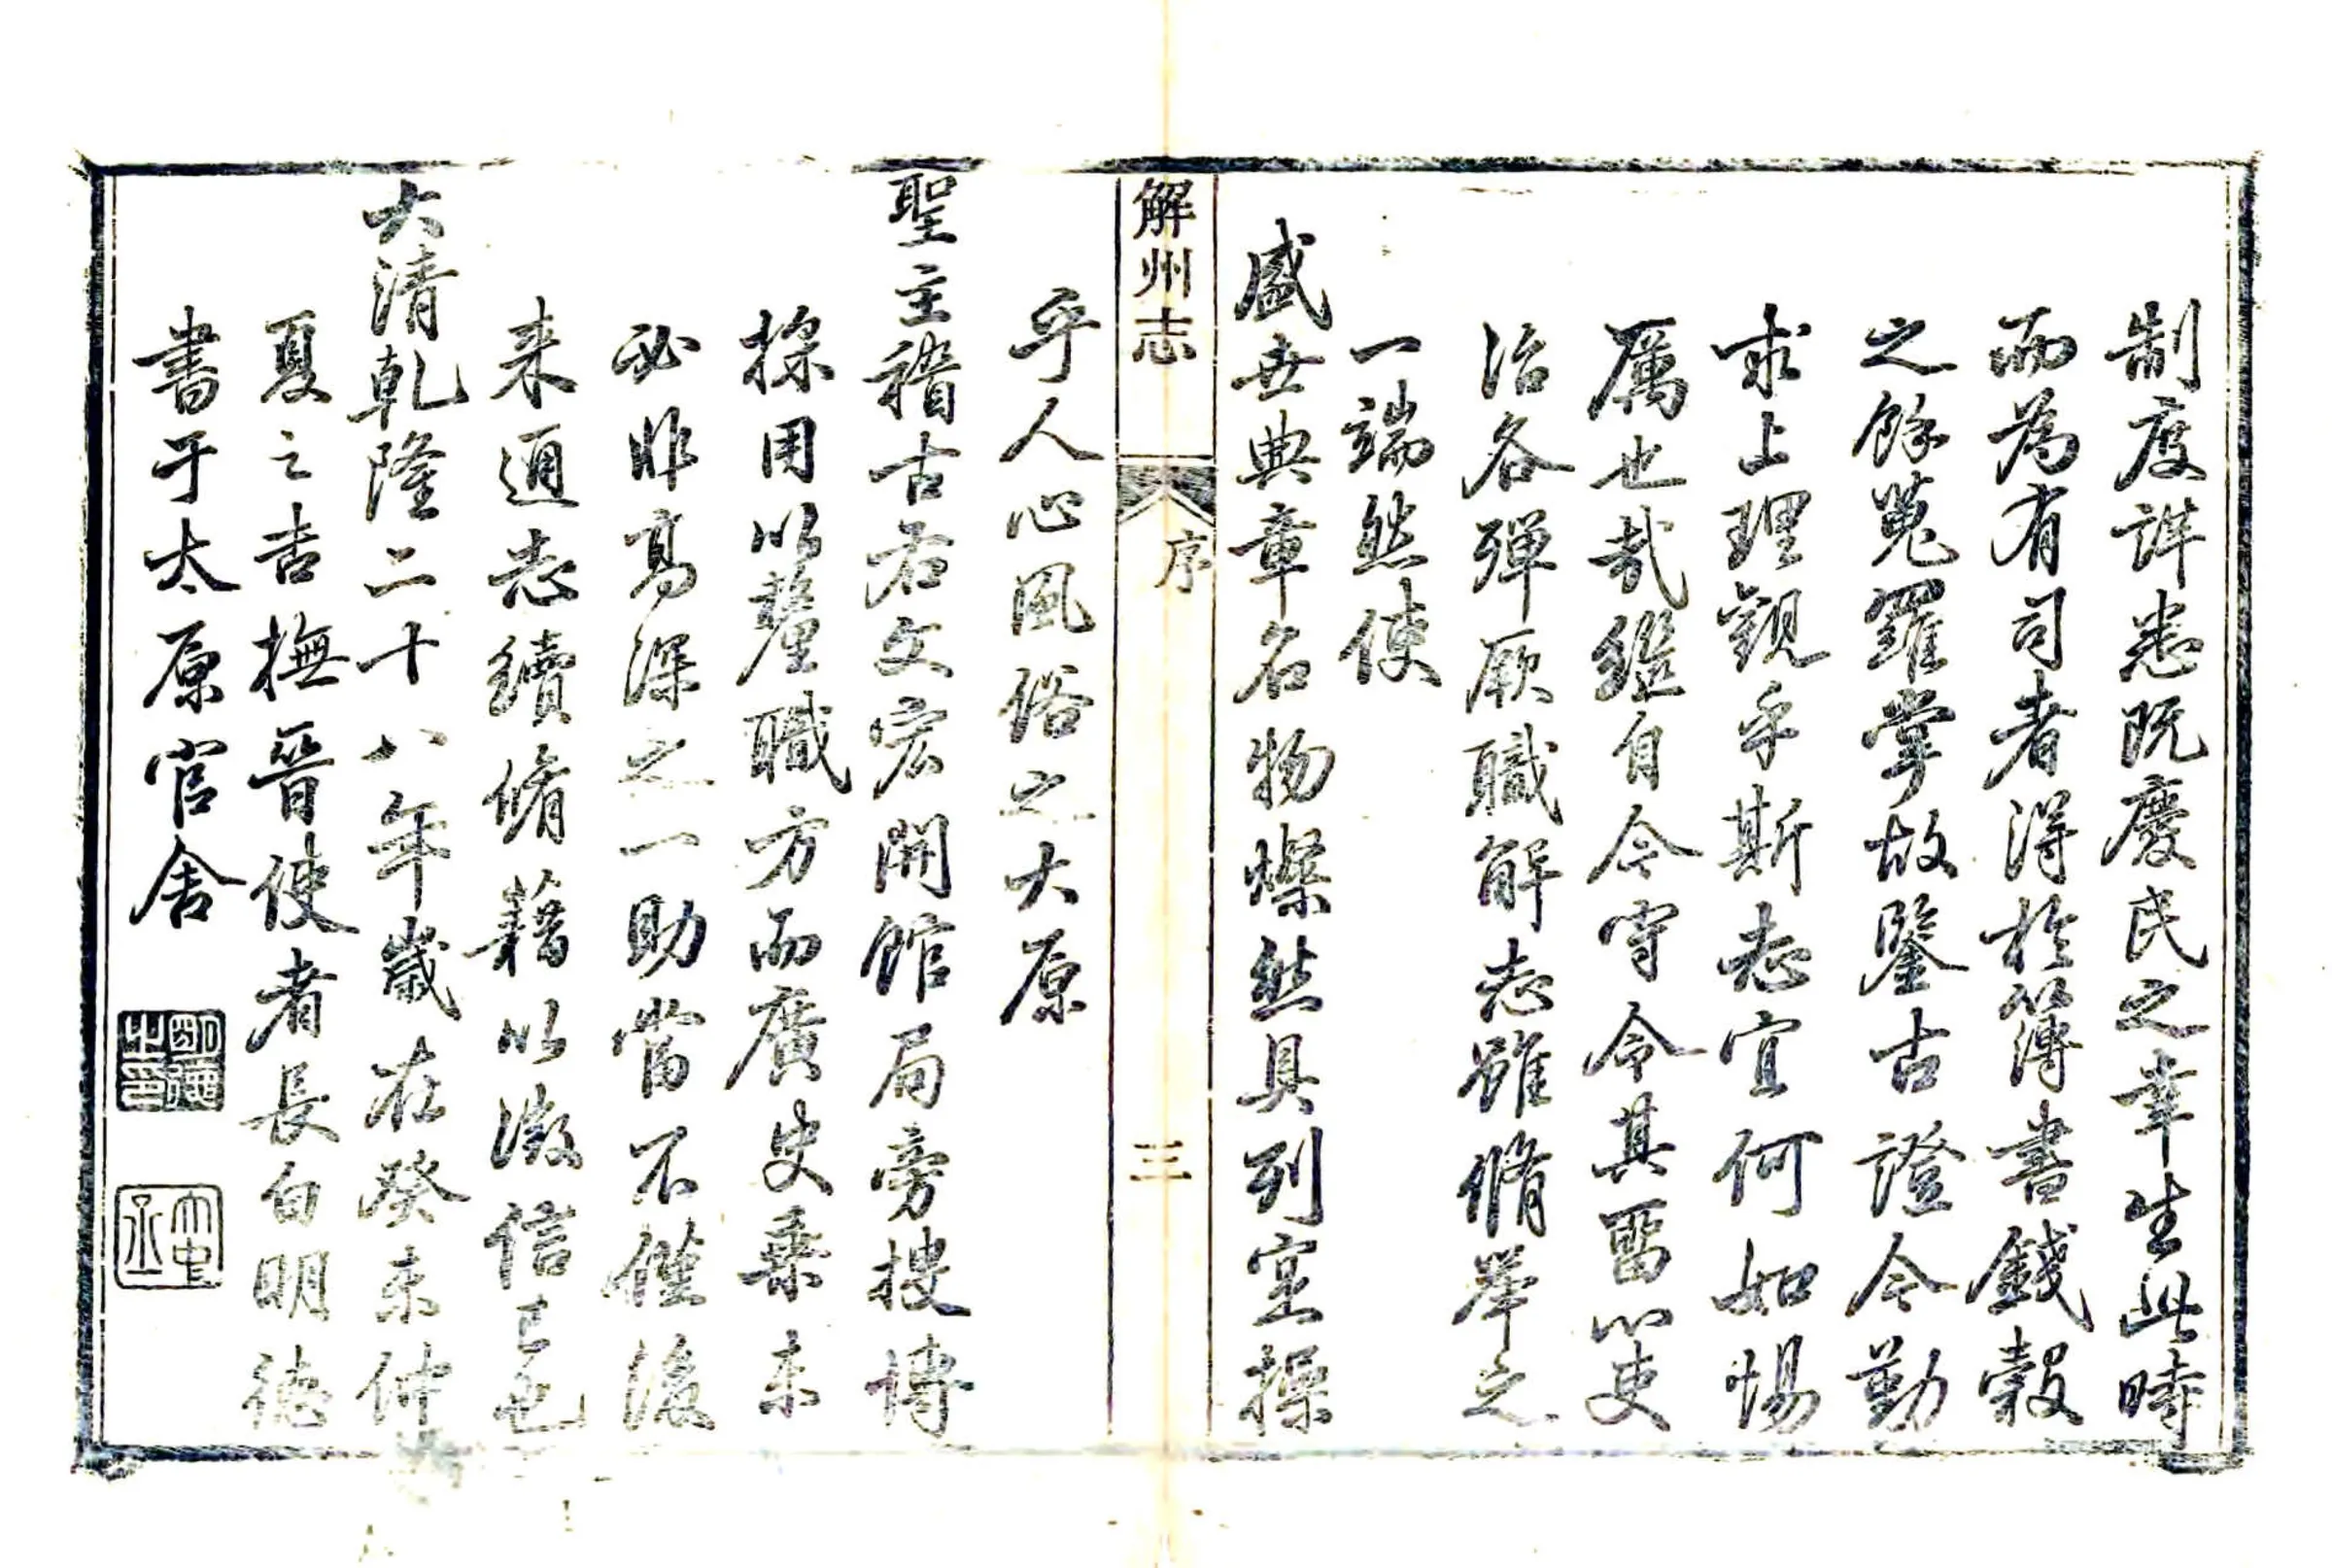 制度詳悉既慶民之幸生此時
而為有司者得於簿書錢穀
之餘蒐羅掌故鑒古證今勤
求上理觀乎斯志宜何如惕
厲也哉繼自今守令其留心吏
治各彈厥職解志雖脩舉之
一端然使
盛世典章名物燦然具列室操
解州志
序
三
乎人心風俗之大原
聖主稽古右文宏開館局旁搜博
採用以釐職方而廣史乗未
必非高深之一助當不僅後
来通志續脩藉以徵信已也
大清乾隆二十八年歲在癸未仲
夏之吉撫晉使者長白明德
書于太原官舍
明德之印
大中丞